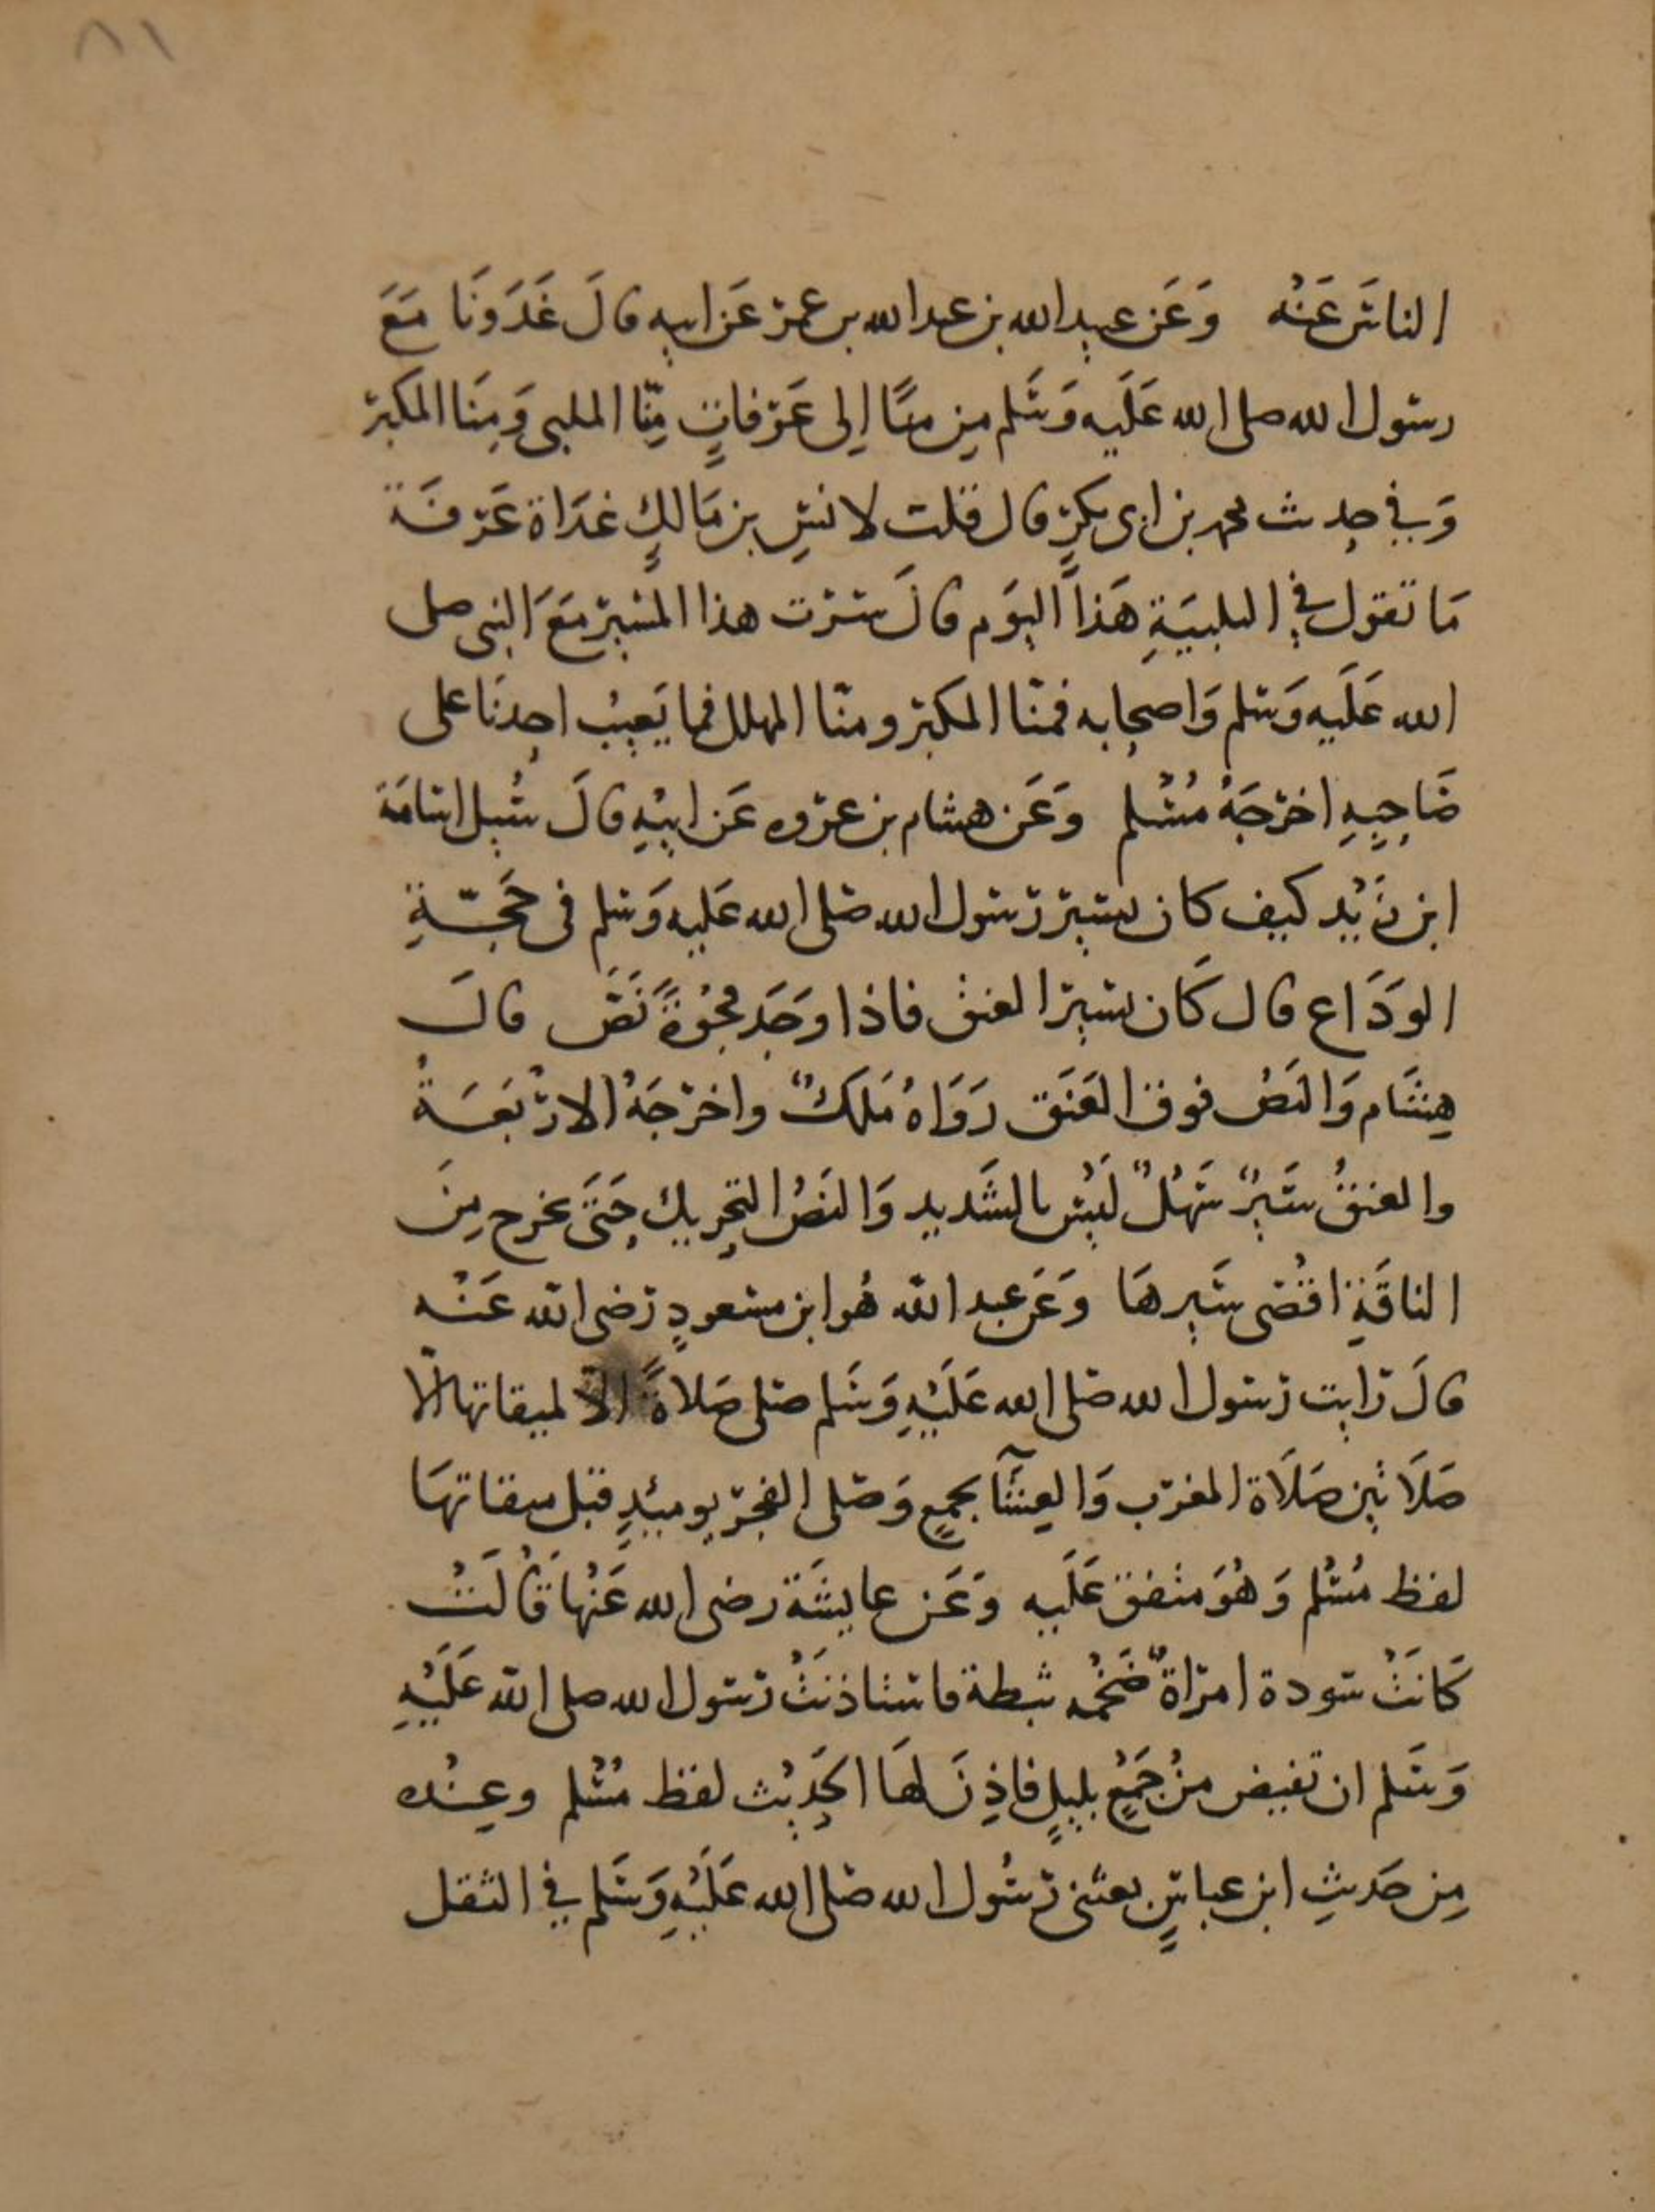 ٨١
الناسَ عَنْه وَعَن عبيد الله بن عبد الله بن عمر عَن ابيه قالَ غَدَونَا مَعَ
رسول الله صلى الله عَلَيه وَسَلم مِن منًا اِلى عَرفاتٍ مِنّا الملبى وَمِنَا المكبر
وَفي حديث محمد بن ابى بكرٍ قال قلت لانسِ بن مَالكٍ غدَاة عَرفَة
مَا تقول في التلبيَةِ هَذا اليَوم قالَ سرت هذا المسير مَعَ النبى صلى
الله عَلَيه وَسَلم وَاصحابه فمنّا المكبر ومنّا المهلل فما يَعِيبُ احدنَا على
صَاحِبِهِ اخرجَهُ مُسْلم وَعَن هشام بن عروه عَن ابيْهِ قالَ سُيل اسامَة
ابن زَيْد كيف كان يسير رسول الله صَلى الله عَليه وَسَلم فى حَجّةِ
الوَدَاع قال كَان يسير العنق فاذا وَجَد فجْوَةً نَصَّ قالَ
هِشَام وَالنَصُ فوق العَنَق رَوَاهُ مَلكٌ واخرجَهُ الارْبَعَةُ
والعنقُ سَيرٌ سَهْلٌ لَيْسَ بالشَديد وَالنَصُ التحريك حَتَى يخرج مِنَ
الناقَةِ اقْصى سَيرهَا وَعَن عبد الله هُو ابن مسعودٍ رَضى الله عَنْه
قالَ رايت رسول الله صَلى الله عَلَيْهِ وَسَلم صَلى صَلاةً الا لميقاتها الّا
صَلَاتين صَلَاة المغرب وَالعِشَآ بجمعٍ وَصَلى الفجر يوميذٍ قبل ميقاتهَا
لفظ مُسْلم وَهُوَ متفق عَلَيه وَعَن عايشَة رضى الله عَنْهَا قَالَتْ
كَانَتْ سَودة امراةً ضَخْمه ثبطة فاستاذنَتْ رسول الله صلى الله عَلَيْهِ
وَسَلم ان تفيض مِنْ جَمْعٍ بليلٍ فاذِنَ لهَا الحَديْث لفظ مُسْلم وعِنْده
مِن حَديثِ ابن عباسٍ بعثنى رسُول الله صَلى الله عَلَيْهِ وَسَلم في الثقل